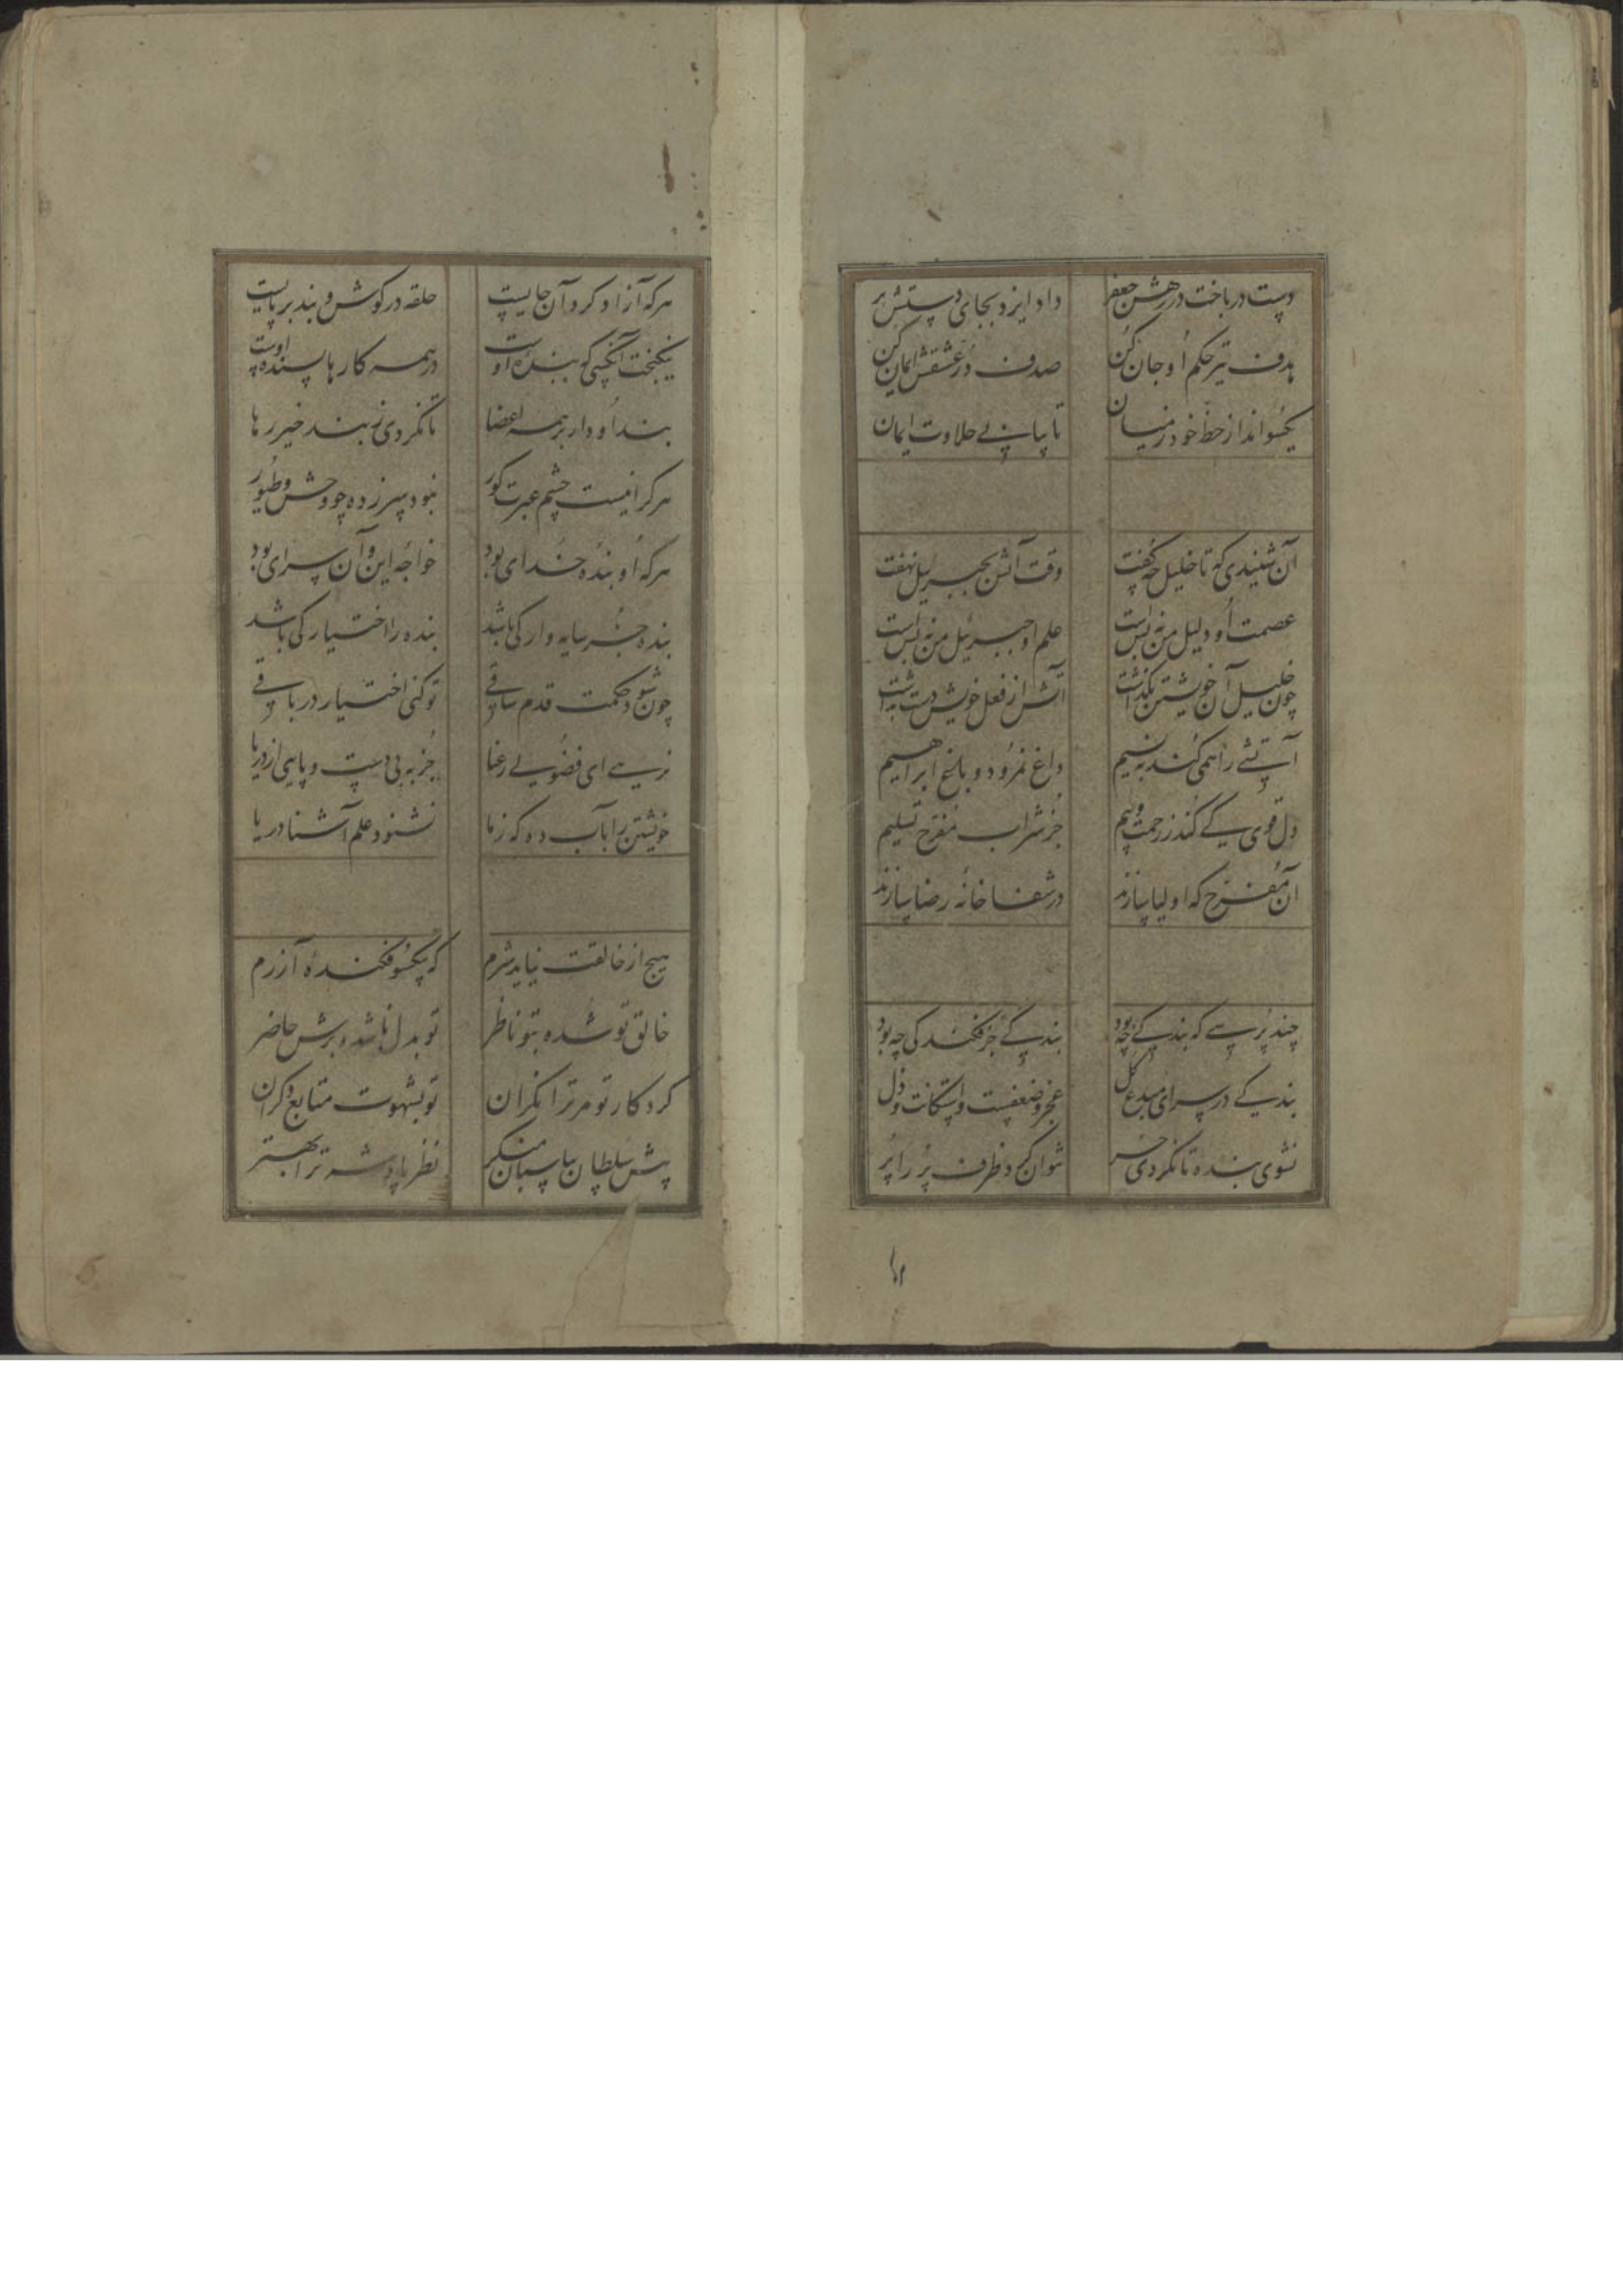 دست در باخت در رهش جعفر داد ایزد بجای دستش پر
هدف تیر حکم او جان کن صدف در عشقش ایمان کن
یکسو انداز حظ خود ز میان تا بیابی حلاوت ایمان
آن شنیدی که تا خلیل چه گفت وقت آتش بجبرئیل نهفت
عصمت او دلیل من نه بس است علم او جبرئیل من نه بس است
چون خلیل آن خویشتن بگذاشت آتش از فعل خویش دست بداشت
آتشی را همی کند به نسیم داغ نمرود و باغ ابراهیم
دل قوی کی کند ز زحمت و بیم جز شراب مفرح تسلیم
آن مفرح که اولیا سازند در شفا خانه رضا سازند
چند پرسی که بندگی چه بود بندگی جز فکندگی چه بود
بندگی در سرای مبدع کل عجز و ضعفست و استکانت و ذل
نشوی بنده تا نگردی حر نتوان کرد ظرف پر را پر
۱۲
هرکه آزاد کرد آن جاییست حلقه در گوش و بند بر پاییست
نیکبخت آنکسی که بنده اوست در همه کارها پسنده اوست
بند او دار بر همه اعضا تا نگردی ز بند خیر رها
هرکرا نیست چشم عبرت کور نبود بهرزده چو وحش و طیور
هرکه او بنده خدای بود خواجه این و آن سرای بود
بنده جز سایه وار کی باشد بنده را اختیار کی باشد
چون شود حکمت قدم ساقی تو کنی اختیار در باقی
نرسی ای فضولی رعنا جز به بی دست و پایی از دریا
خویشتن را بآب ده که ز ما نشنود علم آشنا دریا
هیچ از خالقت نیاید شرم که بیکسو فکنده آزرم
خالق تو شده بتو ناظر تو بدل ناشده برش حاضر
کردکار تو مر ترا نگران تو بشهوت متابع دگران
پیش سلطان بپاسبان منگر نظر پادشه ترا بهتر